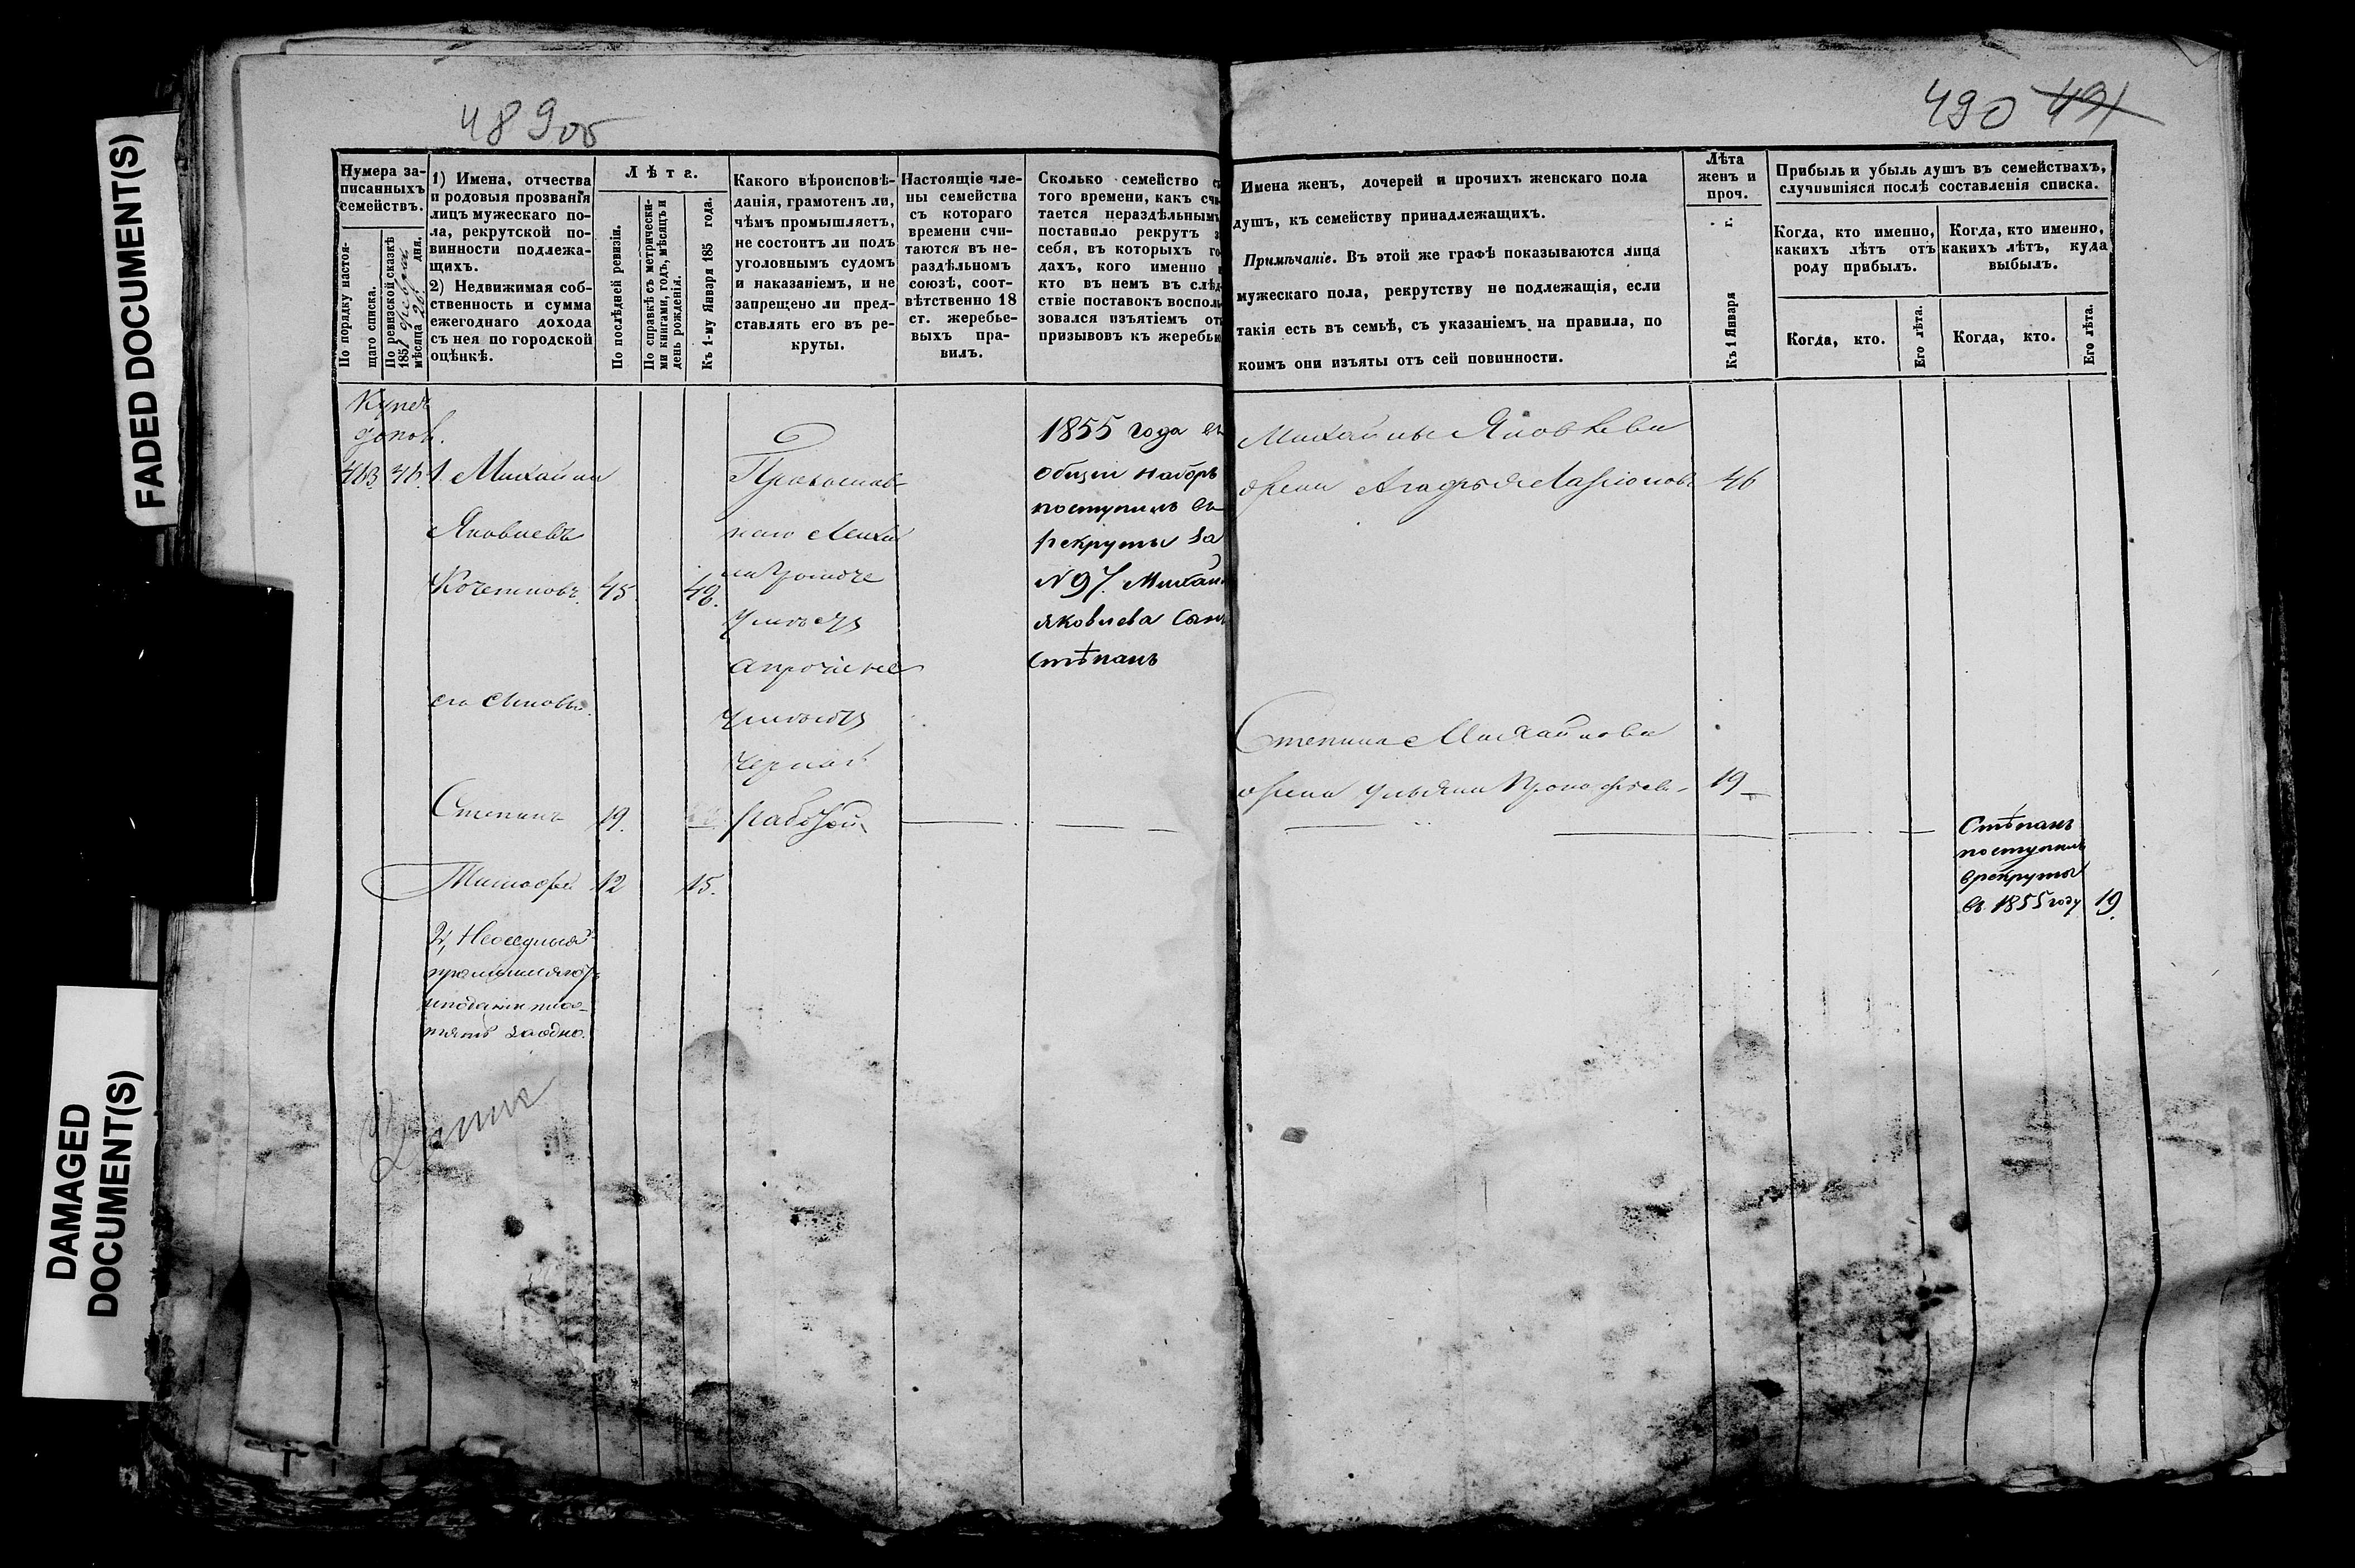 FADED DOCUMENT(S)
DAMAGED
DOCUMENT(S)
489об
Нумера за-
писанныхъ
семействъ.
По порядку настоя-
щаго списка.
По ревизской сказкѣ
185
мѣсяца дня.
1) Имена, отчества
и родовыя прозванія
лицъ мужескаго по-
ла, рекрутской по-
винности подлежа-
щихъ.
2) Недвижимая соб-
ственность и сумма
ежегоднаго дохода
съ нея по городской
оцѣнкѣ.
Лѣта.
По послѣдней ревизіи.
По справкѣ съ метрически-
ми книгами, годъ, мѣсяцъ и
день рожденія.
Къ 1-му Января 185 года.
Какого вѣроисповѣ-
данія, грамотенъ ли,
чѣмъ промышляетъ,
не состоитъ ли подъ
уголовнымъ судомъ
и наказаніемъ, и не
запрещено ли пред-
ставлять его въ ре-
круты.
Настоящіе чле-
ны семейства
съ котораго
времени счи-
таются въ не-
раздѣльномъ
союзѣ, соот-
вѣтственно 18
ст. жеребье-
выхъ пра-
вилъ.
Сколько семейство
того времени, какъ счи
тается нераздѣльнымъ
поставило рекрутъ
себя, въ которыхъ го
дахъ, кого именно
кто въ немъ въ слѣд
ствіе поставокъ восполь
зовался изъятіемъ от
призывовъ къ жеребью
1. Михайла
Яковлевъ
Кочетковъ 45 48.
его сыновья
Степанъ 19.
Тимофей 12 15.
Православ-
наго
а прочіе не
черной
работой
заодно.
1855 года въ
общій наборъ
поступилъ въ
рекруты за
№ 97. Михайл
яковлева сынъ
Стѣпанъ
490 491
Имена женъ, дочерей и прочихъ женскаго пола
душъ, къ семейству принадлежащихъ.
Примѣчаніе. Въ этой же графѣ показываются лица
мужескаго пола, рекрутству не подлежащія, если
такія есть въ семьѣ, съ указаніемъ на правила, по
коимъ они изъяты отъ сей повинности.
Лѣта
женъ и
проч.
Къ 1 Января г.
Прибыль и убыль душъ въ семействахъ,
случившіяся послѣ составленія списка.
Когда, кто именно,
какихъ лѣтъ отъ
роду прибылъ.
Когда, кто именно,
какихъ лѣтъ, куда
выбылъ.
Когда, кто.
Его лѣта.
Когда, кто.
Его лѣта.
Михайлы Яковлева
жена 46
Степана Михайлова
жена Ульяна 19
Стѣпанъ
поступилъ
врекруты
въ 1855 году 19.